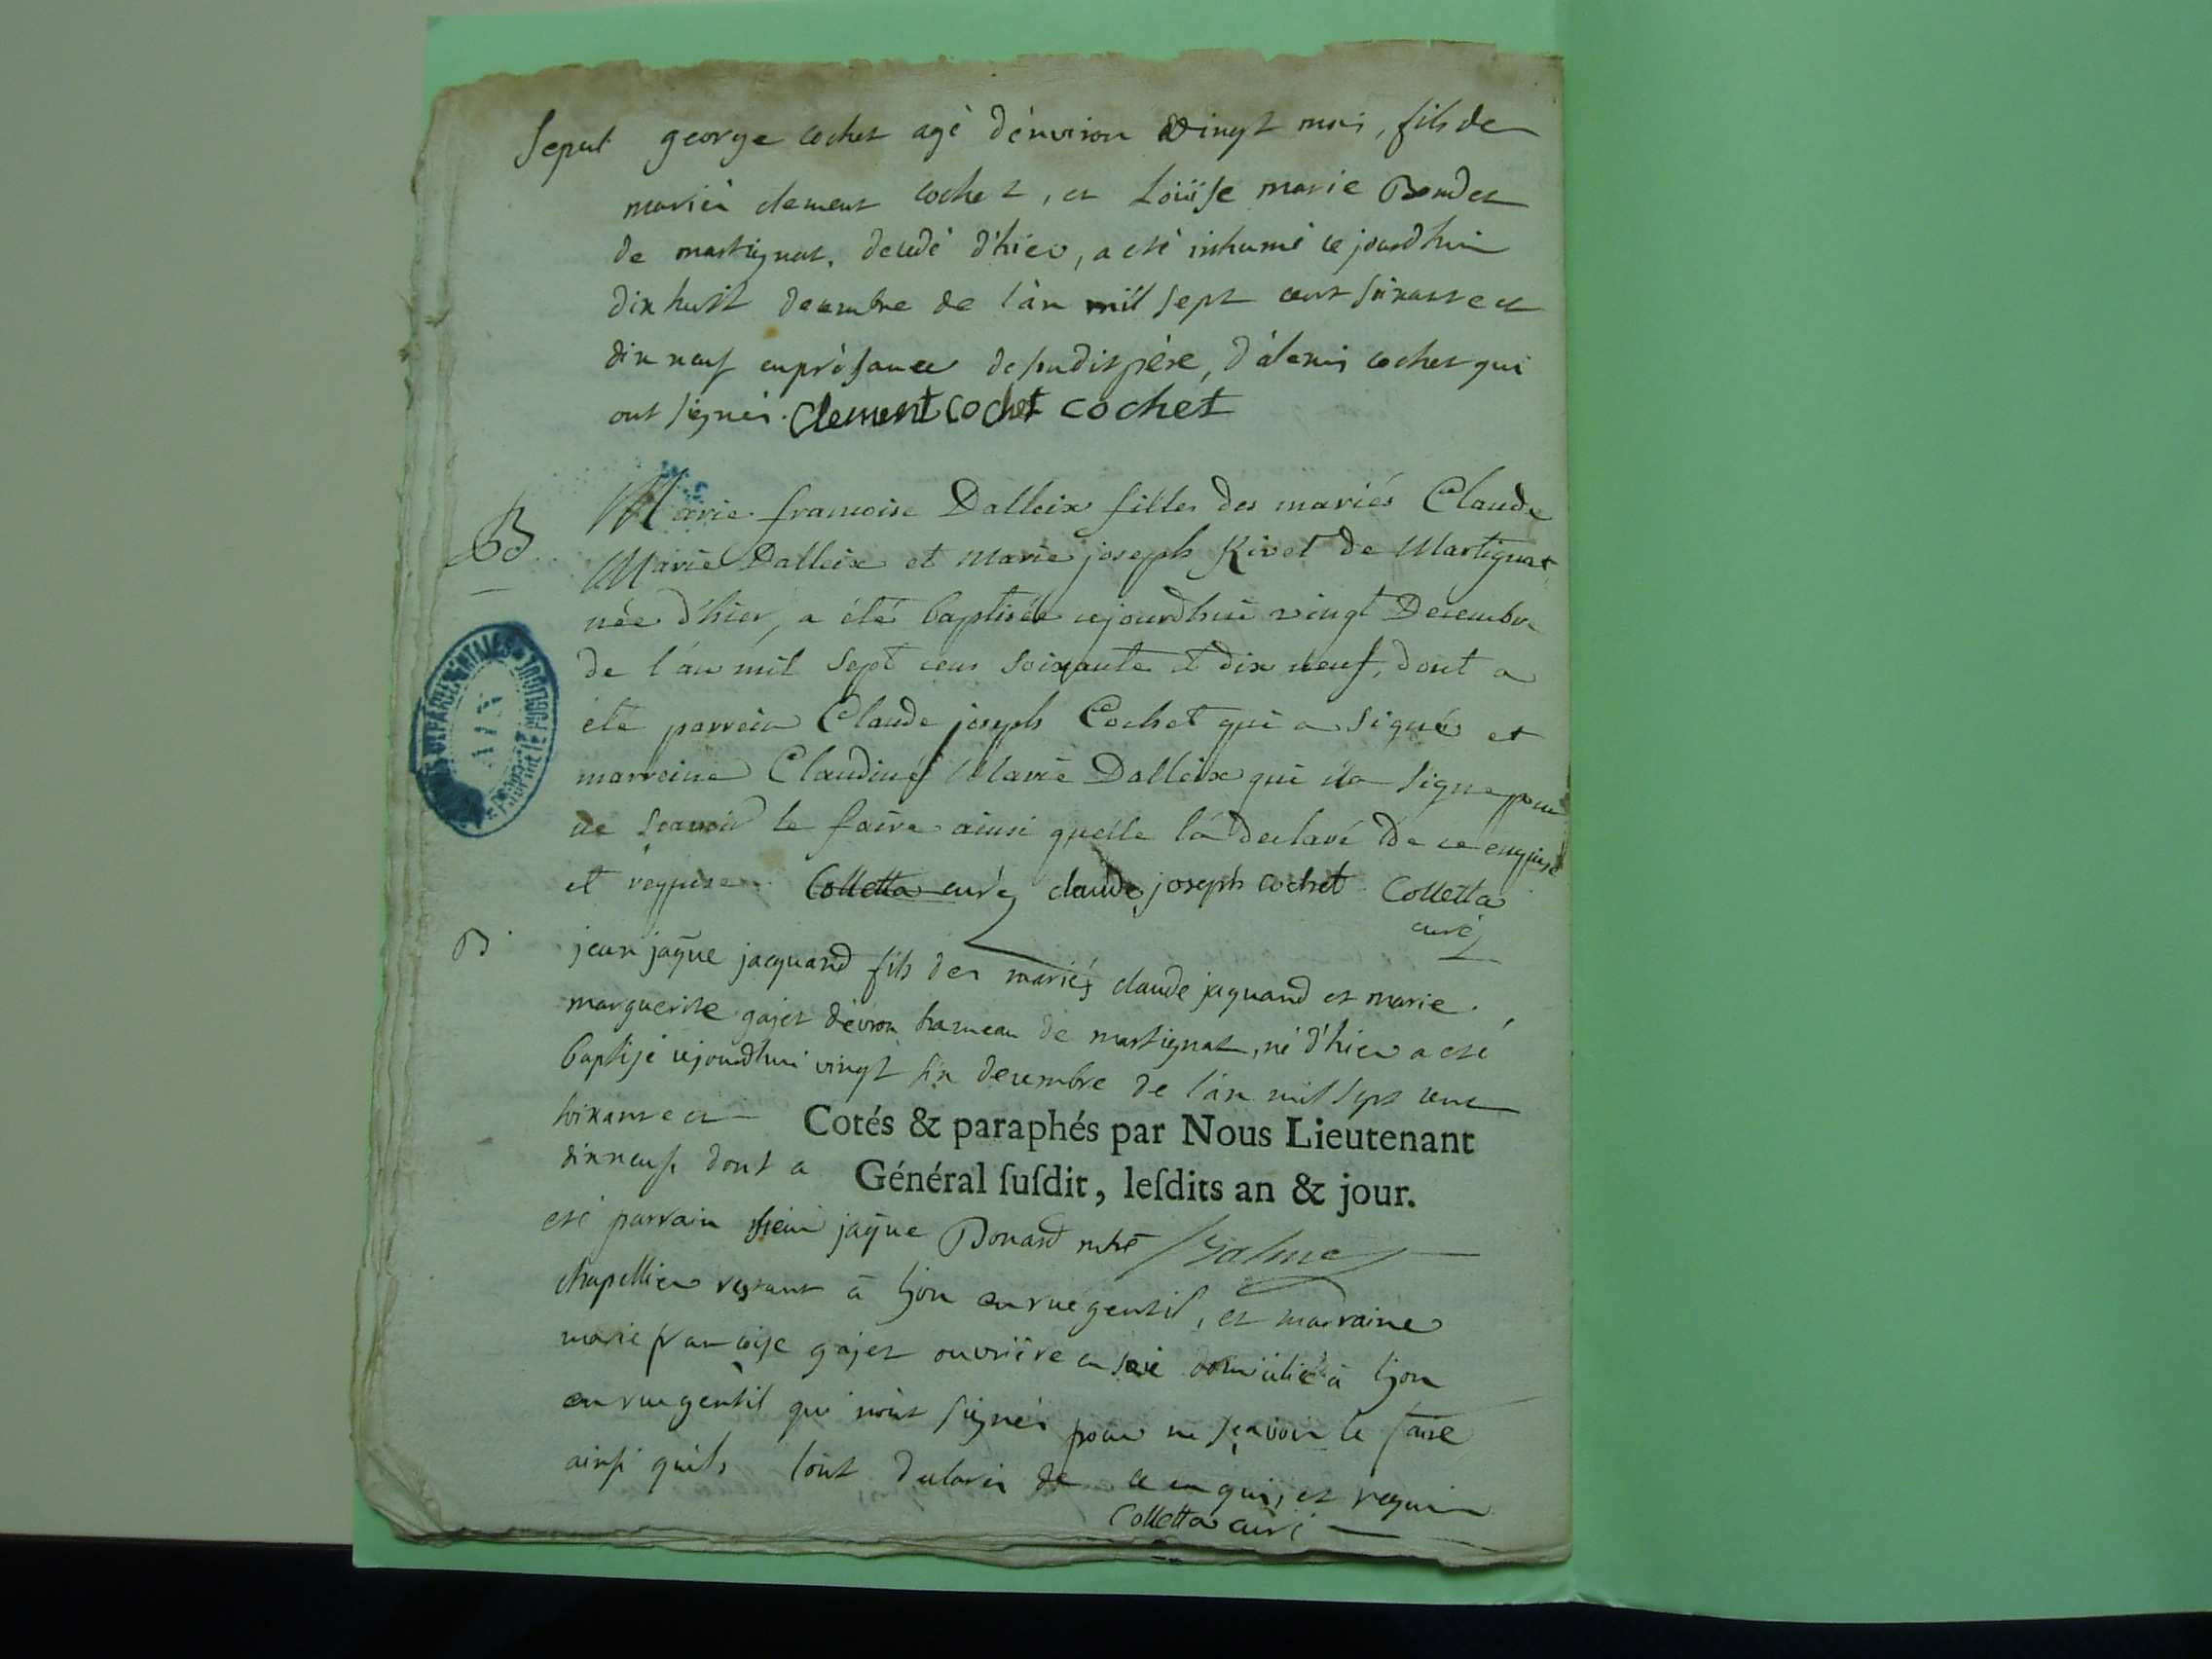 Sepul george cochet agé d'environ vingt mois, fils de
mariés clement cochet, et Loüise marie Bondet
de martignat, decedé d'hier, a eté inhumé ce jourdhui
dix huit decembre de l'an mil sept cent soixante et
dix neuf en présance de sondit père, d'alexis cochet qui
ont signés. Clement cochet cochet
B Marie francoise Dalleix filles des mariés Claude
Marie Dalleix et Marie joseph Rivet de Martignat
née d'hier, a été baptisée cejourdhui vingt Decembre
de l'an mil sept cens soixante et dix neuf, dont a
été parrein Claude joseph Cochet qui a signé et
marreine Claudine Marie Dalleix qui n'a signe pour
ne scavoir le faire ainsi quelle l'a declaré de ce enquise
et requise. Colletta curé claude joseph cochet Colletta
curé
B jean jaque jacquand fils des mariés claude jaquand et marie
marguerite gojet d'evron hameau de martignat, né d'hier a eté
baptisé cejourdhui vingt six decembre de l'an mil sept cent
soixante et Cotés & paraphés par Nous Lieutenant
dix neuf, dont a Général ſuſdit, leſdits an & jour.
eté parrain sieur jaque Bonard
chapellier restant à lyon en rue gentil, et marraine
marie francoise gojet ouvrière en soie domiciliée à lyon
en rue gentil qui n'ont signés pour ne sçavoir le faire
ainsi quils l'ont declarés de ce enquis et requis
Colletta curé
DEPARTEMENTALES
AIN